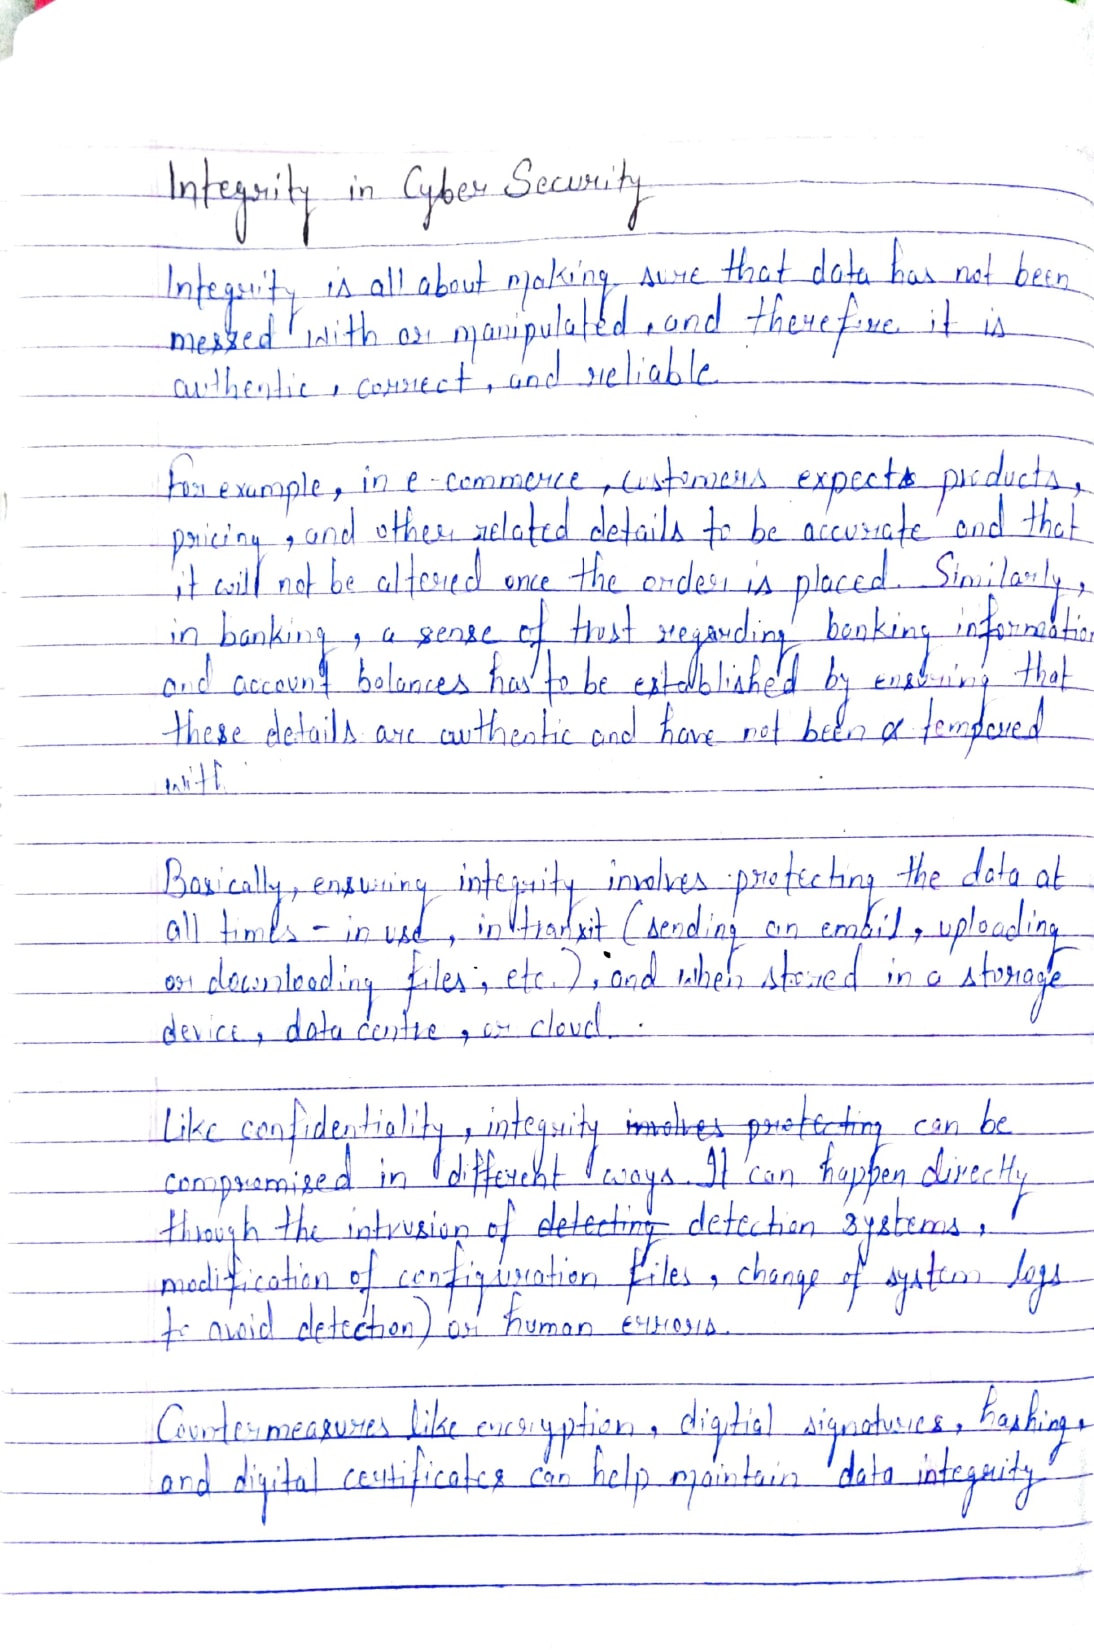 Integrity in Cyber Security
Integrity is all about making sure that data has not been
messed with or manipulated, and therefore it is
authentic, correct, and reliable.
For example, in e-commerce, customers expects products,
pricing, and other related details to be accurate and that
it will not be altered once the order is placed. Similarly,
in banking, a sense of trust regarding banking information
and account balances has to be established by ensuring that
these details are authentic and have not been a tempered
with.
Basically, ensuring integrity involves protecting the data at
all times - in use, in transit (sending an email, uploading
or downloading files, etc.), and when stored in a storage
device, data centre, or cloud.
Like confidentiality, integrity involves protecting can be
compromised in different ways. It can happen directly
through the intrusion of detecting detection systems,
modification of configuration files, change of system logs
to avoid detection) or human errors.
Countermeasures like encryption, digitial signatures, hashing,
and digital certificates can help maintain data integrity